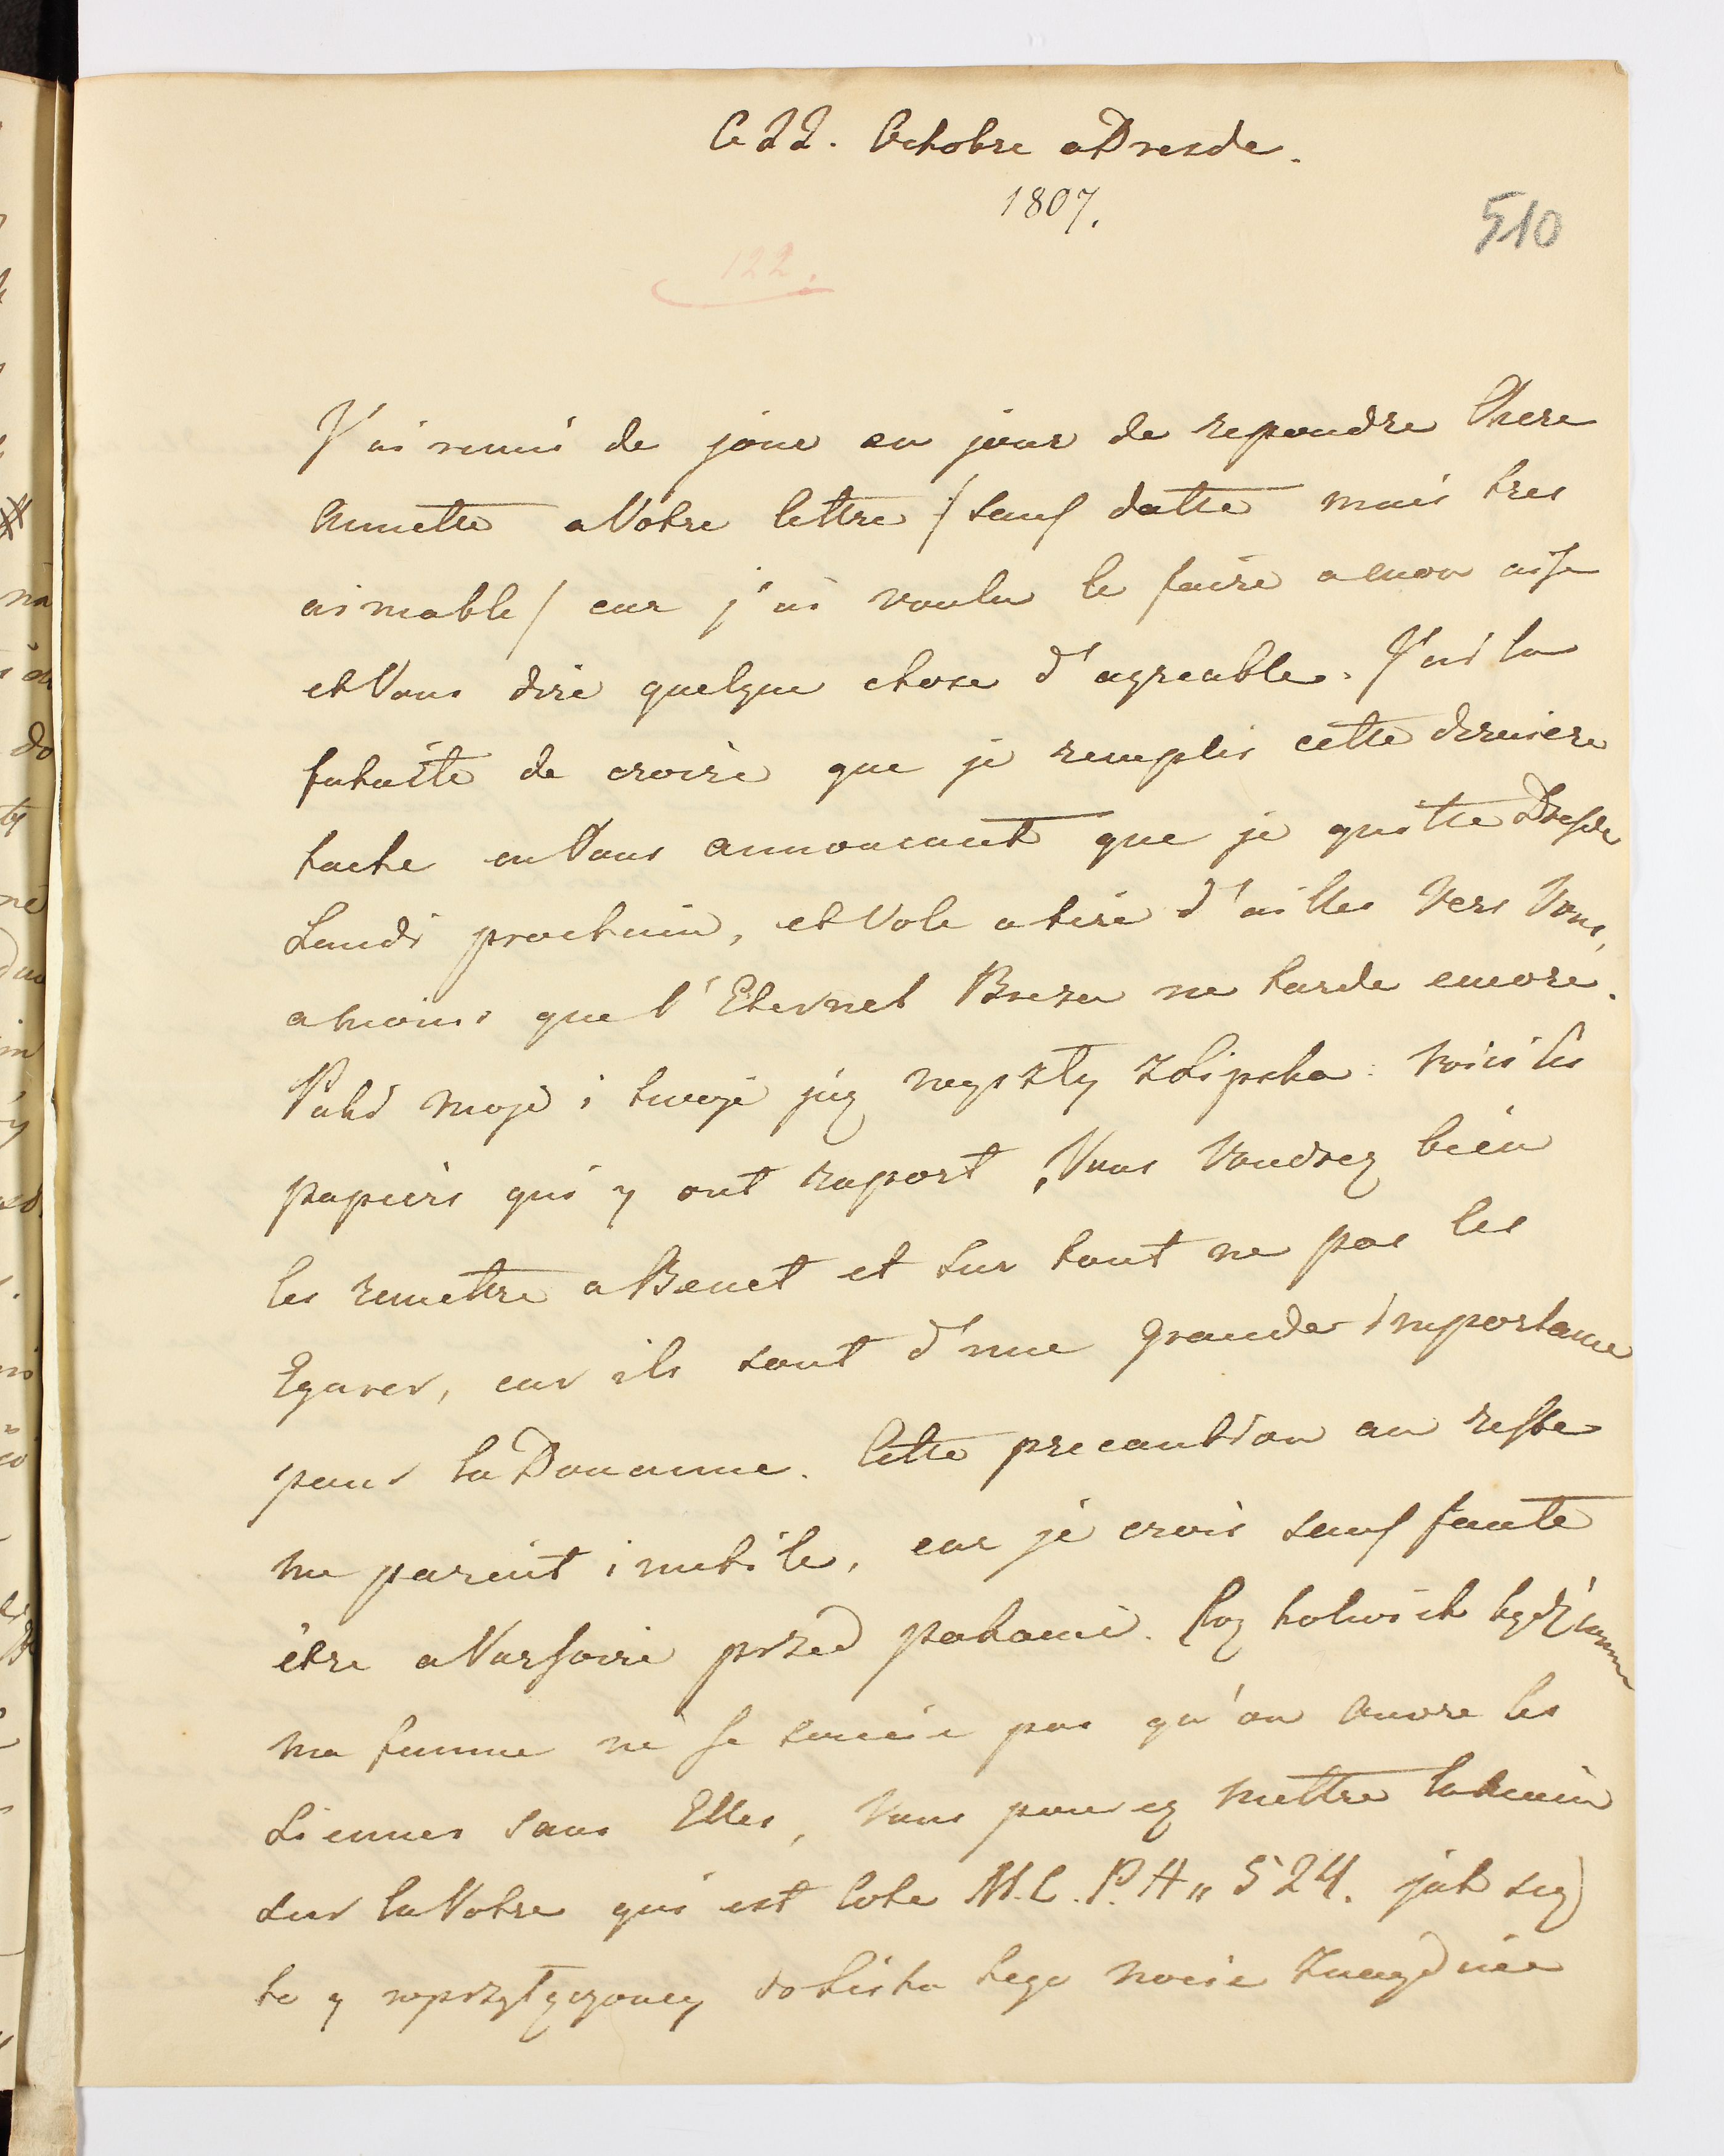 Ce 22. Octobre a Dresde.
1807.
510
122.
J'ai remis de jour en jour de repondre Chere
Annette a Votre lettre / sauf datte mais tres
aimable / car j'ai voulu le faire a mon aise
et Vous dire quelque chose d'agreable. J'ai la
fatuité de croire que je remplis cette derniere
tache en Vous annoncant que je quitte Dresde
Lundi prochain, et Vole a tire d'ailles Vers Vous,
a moins que l'Eternel Breza ne tarde encore.
Paki moje i twoje juz wyszly z Lipska: voici les
papiers qui y ont raport, Vous Voudrez bien
les remettre a Benet et sur tout ne pas les
Egarer, car ils sont d'une grande importance
pour la Douanne. Cette precaution au reste
me parait inutile, car je crois sauf faute
être a Varsovie przed pakami. Coz kolwiek bądź
ma femme ne se soucie pas qu'on ouvre les
Siennes sans Elles, Vous pouvez mettre la main
sur la Votre qui est Cote M.C.P.H „ 524. jak się
to y w przyłączoney do Listu tego nocie znayduie